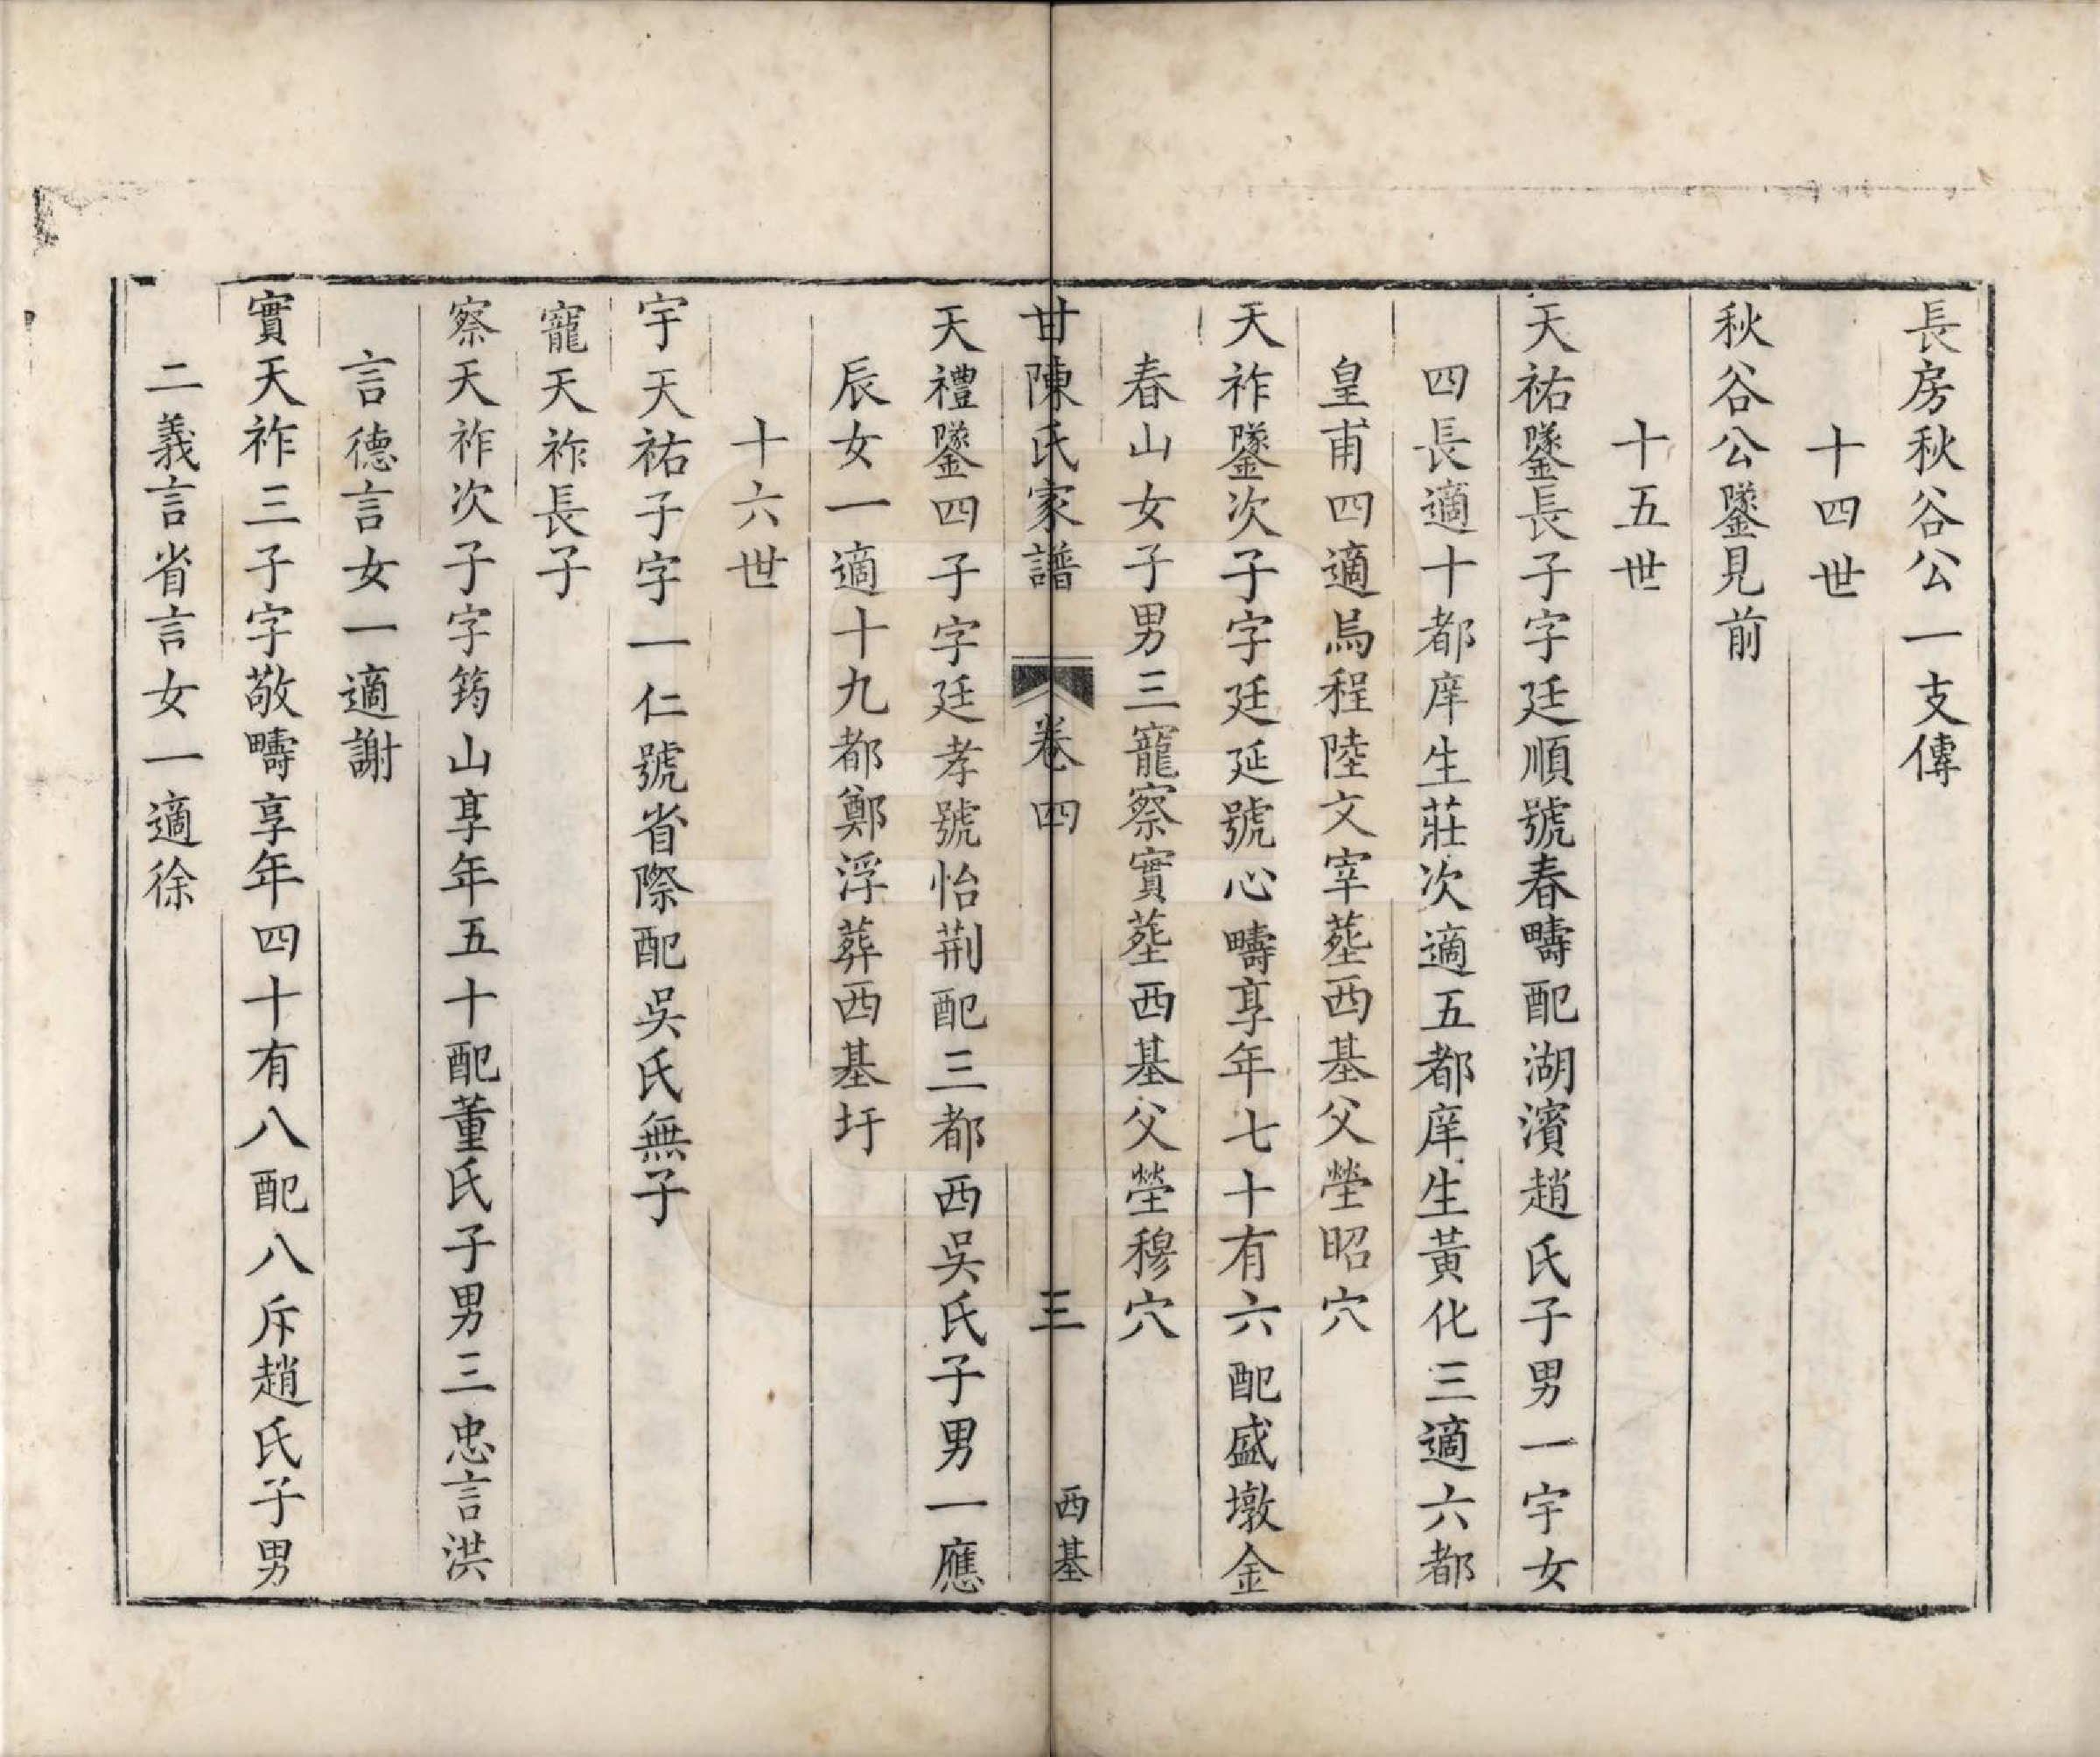 長房秋谷公一支傳
十四世
秋谷公鐆見前
十五世
天祐鐆長子字廷順號春疇配湖濱趙氏子男一宇女
四長適十都庠生莊次適五都庠生黃化三適六都
皇甫四適烏程陸文宰塟西基父塋昭穴
天祚鐆次子字廷延號心疇享年七十有六配盛墩金
春山女子男三寵察實塟西基父塋穆穴
甘陳氏家譜 卷四 三 西基
天禮鐆四子字廷孝號怡荆配三都西吳氏子男一應
辰女一適十九都鄭浮葬西基圩
十六世
宇天祐子字一仁號省際配吳氏無子
寵天祚長子
察天祚次子字筠山享年五十配董氏子男三忠言洪
言德言女一適謝
實天祚三子字敬疇享年四十有八配八斥趙氏子男
二義言省言女一適徐